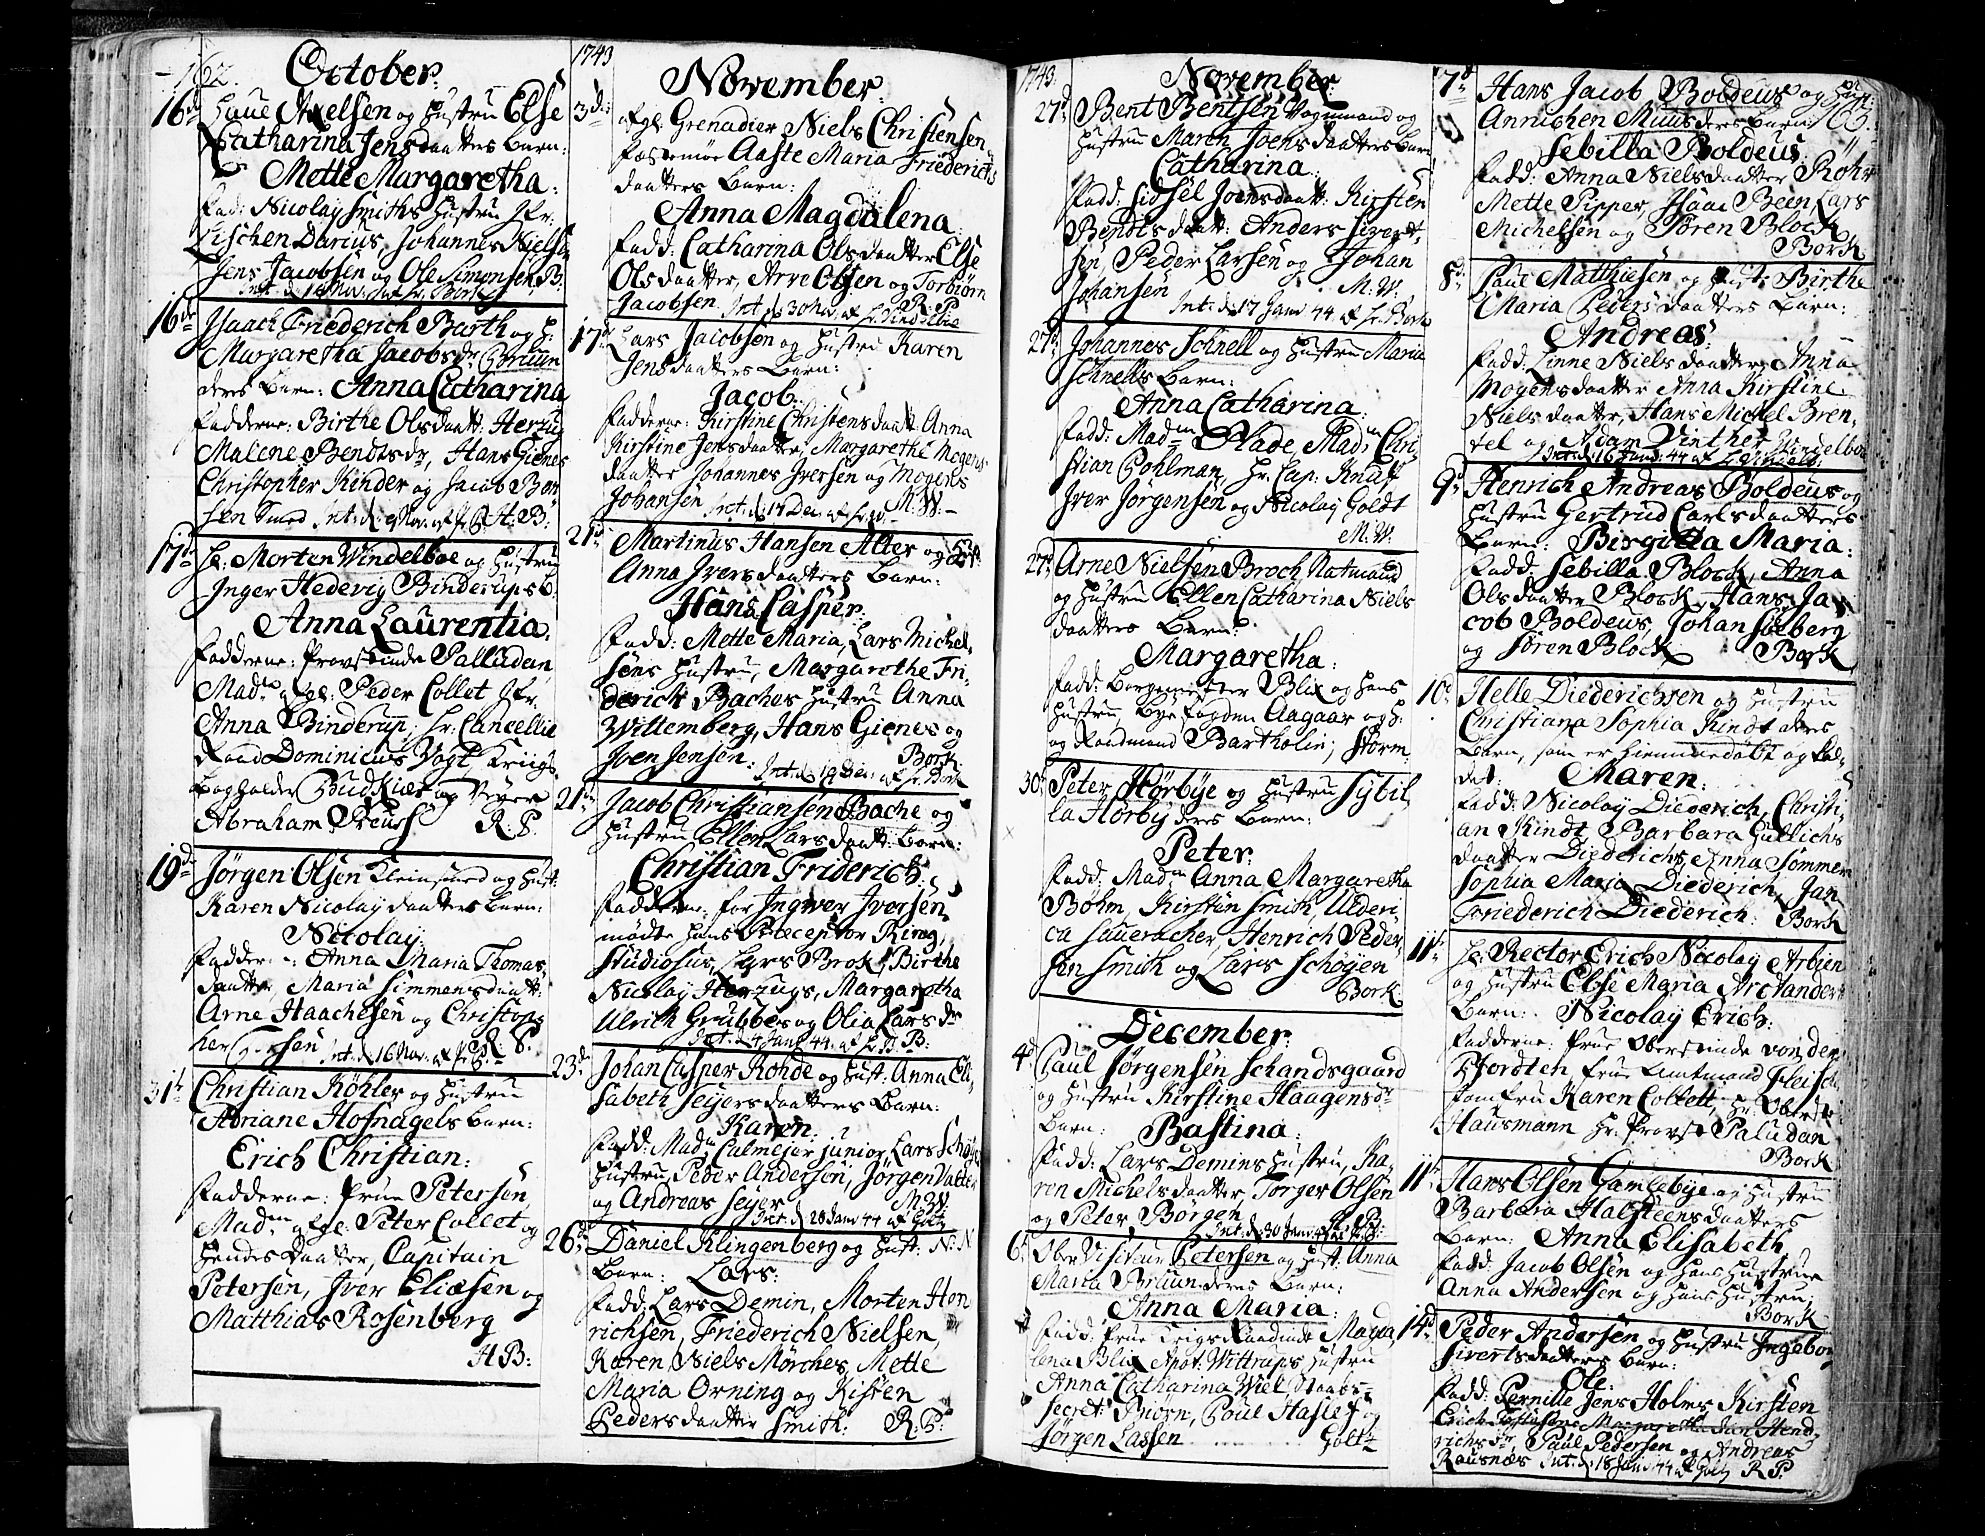 162.
October.
16de Haue Axelsen og Hustru Else
Catharina Jensdaatters Barn:
Mette Margaretha:
Fad: Nicolay Smiths Hustru Jfr:
Lischen Darius, Johannes Nielsen,
Jens Jacobsen og Ole Simonsen B.
Int: d: 16 Nov: af Hr. Bork
16de Isaach Friederich Barth og H:
Margaretha Jacobsdr Bruun
deres Barn: Anna Catharina
Fadderne: Birthe Olsdaatt: Herzug
Malene Bendtsdr, Hans Gienes
Christopher Kinder og Jacob Bon
sen Smed H: B:
17de Hr: Morten Windelboe og Hustru
Inger Hedevig Binderups B.
Anna Laurentia.
Fadderne: Provstinde Palludan,
Madm afg: Peder Collet Jfr.
Anna Binderup, Hr. Cancellie
Raad Dominicus Vogt, Kriigs
Bogholder Budkier og
Abraham Preuss R. P.
19de Jørgen Olsen Kleinsmed og Hust:
Karen Nicolay daatters Barn:
Nicolay.
Fadder: Anna Maria Thomas
daatter, Maria Simmensdaatt:
Arne Haachesen og Christop
her Int: d: 16 Nov: R. S.
31te Christian Köhler og Hustru
Adriane Hofnagels Barn:
Erich Christian:
Fadderne: Frue Petersen,
Madm afg: Peter Collet og
hendes daatter, Capitain
Petersen, Iver Eliæsen og
Matthias Rosenberg
H B:
1743
November.
3de: afg: Grenadeer Niels Christensen
Fæstemøe Aaste Maria Friederichs
daatters Barn:
Anna Magdalena
Fadd: Catharina Olsdaatter Else
Olsdaatter, Arve Olsen og Torbiørn
Jacobsen. Int: d: 30 Nov: af Hr. Vindelboe R. P.
17de Lars Jacobsen og Hustru Karen
Jensdaatters Barn:
Jacob.
Fadderne: Kirstine Christensdaatt: Anna
Kirstine Jensdaatter, Margarethe Mogens
daatter Johannes Iversen og Mogens
Johansen Int: d: 17 Dec: M. W.
21de Martinus Hansen Alter og Hust:
Anna Iversdaatters Barn:
Hans Casper.
Fadd: Mette Maria, Lars Michel
sens Hustru, Margarethe Fri-
derick Baches Hustru Anna
Willemberg, Hans Gienes og
Joen Jensen. Bork.
Int: d: 19 Dec: af Hr. Bork
21de Jacob Christiansen Bache og
Hustru Ellen Larsdaatt: Barn:
Christian Friderich:
Fadderne: for Ingwer Iversen,
mødte hans Præceptor Ring,
Studiosus, Lars Brok, Birthe
Nicolay Herzugs, Margaretha
Ulrich Grubbes og Olia Lars dr
Int: d: 4 Jan: 44. af H: B:
23de Johan Casper Rohde og Hust: Anna Eli
sabeth Seyersdaatters Barn:
Karen:
Fadd: Madm Calmejer junior, Lars Schøyens
Hustru, Peder Andersen, Jørgen Vatter
og Andreas Seyer M. W.
Int: d: 28 Jan: 44 af Goltz
26de Daniel Klingenberg og Hust: N: N
Barn: Lars:
Fadd: Lars Demin, Morten Hen
richsen, Friederich Nielsen,
Karen Niels Mørches, Mette
Maria Orning og Kisten
Pedersdaatter Smith: R. P:
1743.
November.
27de Bent Bentsen Vognmand og
Hustru Maren Joensdaatters Barn
Catharina:
Fadd: Sidsel Joensdaatt: Kirsten
Bendtsdaatt: Anders Sivert-
sen, Peder Larsen og Johan
Johansen M: W:
Int: d: 17 Janv 44 af Hr. Bork
27de Johannes Schnell og Hustru Maria
Schnells Barn:
Anna Catharina:
Fadd: Madm Plade, Madm Chri-
stian Pohlman, Hr. Cap: Knuff
Iver Jørgensen og Nicolay Goldt
M: W.
27de Arne Nielsen Broch Natmand
og Hustru Ellen Catharina Niels
daatters Barn:
Margaretha:
Fadd: Borgemester Blix og hans
Hustru, Bye Fogden Aagaar og H:
og Raadmand Bartholin, Storm
30te Peter Hørbye og Hustru Sybil
la Hørby deres Barn:
Peter:
Fadd: Madm Anna Margaretha
Bøhm, Kirsten Smith, Ulderi
ca Saueracher, Henrich Peder
sen Smith og Lars Schøyen
Bork
December.
4de Paul Jørgensen Schandsgaard
og Hustru Kirstine Haagensdr
Barn: Bastina:
Fadd: Lars Demins Hustru, Ka-
ren Michelsdaatter, Torger Olsen
og Peter Borgen
Int: d: 30 Janv
6te Ober Visiteur Petersen og Hust: Anna
Maria Bruun deres Barn:
Anna Maria:
Fadd: Frue Krigs Raadinde Magda
lena Blix Apot: Wittrups Hustru
Anna Catharina Wiel, Staabs-
Secret: Biørn, Poul Haslef og
Jørgen Lassen Goltz
163.
7de Hans Jacob Boldeus og Hust:
Annichen Muus deres Barn:
Sebilla Boldeus:
Fadd: Anna Nielsdaatter Röhr
Mette Pipper, Isaac Been, Lars
Michelsen og Søren Block
Bork.
8de Paul Matthiesen og Hust: Birthe
Maria Pedersdaatters Barn:
Andreas:
Fadd: Linne Nielsdaatter, Anna
Mogensdaatter Anna Kirstine
Nielsdaatter, Hans Michel Bren-
tel og Adam Vinther Windelboe
Int: d: 16 Janv: 44 af Hr. Vindelb:
9de Henrich Andreas Boldeus og
Hustru Gertrud Carlsdaatters
Barn: Birgitta Maria:
Fadd: Sebilla Block, Anna
Olsdaatter Block, Hans Ja
cob Boldeus, Johan Siøberg
og Søren Block Bork
10de Helle Diederichsen og Hustru
Christiana Sophia Kindt deres
Barn, som er hiemmedøbt og kal-
det: Maren:
Fadd: Nicolay Diederich, Christi-
an Kindt, Barbara Gullichs
daatter Diederichs, Anna Sommer
Sophia Maria Diederich, Jan
Friederich Diederich: Bork
11te Hr: Rector Erich Nicolay Arbien
og Hustru Else Maria Arctander
Barn: Nicolay Erich:
Fadderne: Frue Oberstinde von der
Pfordten Frue Amtmand Fleisch
Jomfru Karen Collett, Hr: Oberst
Hausmann Hr: Provst Paludan
Bork
11te Hans Olsen Gamlebye og Hustru
Barbara Halsteensdaatters
Barn: Anna Elisabeth
Fadd: Jacob Olsen og hans Hustrue
Anna Andersen og hans Hustru;
Bork
14de Peder Andersen og Hustru Ingeborg
Sivertsdaatters Barn:
Ole:
Fadd: Pernille Jens Holms Kirsten
Erich Margaretha Hend
richsdr, Paul Pedersen og Andreas
Rausnæs Int: d: 18 Janv 44 af Goltz R P.